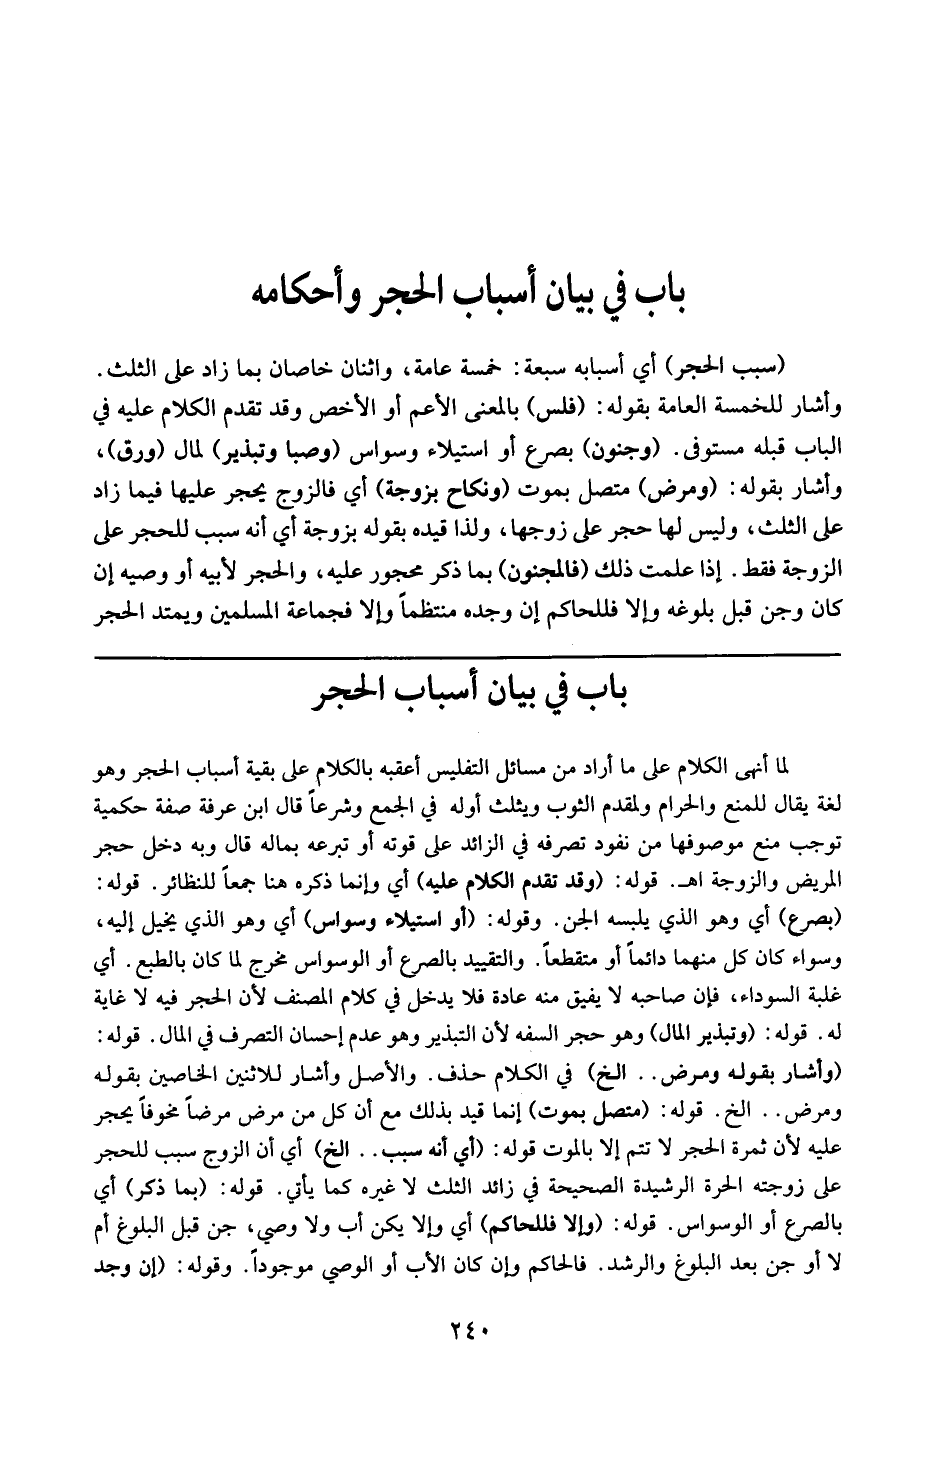 باب في بيان أسباب الحجر وأحكامه
(سبب الحجر) أي أسبابه سبعة: خمسة عامة، واثنان خاصان بما زاد على الثلث.
وأشار للخمسة العامة بقوله: (فلس) بالمعنى الأعم أو الأخص وقد تقدم الكلام عليه في
الباب قبله مستوفى. (وجنون) بصرع أو استيلاء وسواس (وصبا وتبذير) لمال (ورق)،
وأشار بقوله: (ومرض) متصل بموت (ونكاح بزوجة) أي فالزوج يحجر عليها فيما زاد
على الثلث، وليس لها حجر على زوجها، ولذا قيده بقوله بزوجة أي أنه سبب للحجر على
الزوجة فقط. إذا علمت ذلك (فالمجنون) بما ذكر محجور عليه، والحجر لأبيه أو وصيه إن
كان وجن قبل بلوغه وإلا فللحاكم إن وجده منتظماً وإلا فجماعة المسلمين ويمتد الحجر
باب في بيان أسباب الحجر
لما أنهى الكلام على ما أراد من مسائل التفليس أعقبه بالكلام على بقية أسباب الحجر وهو
لغة يقال للمنع والحرام ولمقدم الثوب ويثلث أوله في الجمع وشرعاً قال ابن عرفة صفة حكمية
توجب منع موصوفها من نفود تصرفه في الزائد على قوته أو تبرعه بماله قال وبه دخل حجر
المريض والزوجة اهـ. قوله: (وقد تقدم الكلام عليه) أي وإنما ذكره هنا جمعاً للنظائر. قوله:
(بصرع) أي وهو الذي يلبسه الجن. وقوله: (أو استيلاء وسواس) أي وهو الذي يخيل إليه،
وسواء كان كل منهما دائماً أو متقطعاً. والتقييد بالصرع أو الوسواس مخرج لما كان بالطبع. أي
غلبة السوداء، فإن صاحبه لا يفيق منه عادة فلا يدخل في كلام المصنف لأن الحجر فيه لا غاية
له. قوله: (وتبذير المال) وهو حجر السفه لأن التبذير وهو عدم إحسان التصرف في المال. قوله:
(وأشار بقوله ومرض.. الخ) في الكلام حذف. والأصل وأشار للاثنين الخاصين بقوله
ومرض.. الخ. قوله: (متصل بموت) إنما قيد بذلك مع أن كل من مرض مرضاً مخوفاً يحجر
عليه لأن ثمرة الحجر لا تتم إلا بالموت قوله: (أي أنه سبب.. الخ) أي أن الزوج سبب للحجر
على زوجته الحرة الرشيدة الصحيحة في زائد الثلث لا غيره كما يأتي. قوله: (بما ذكر) أي
بالصرع أو الوسواس. قوله: (وإلا فللحاكم) أي وإلا يكن أب ولا وصي، جن قبل البلوغ أم
لا أو جن بعد البلوغ والرشد. فالحاكم وإن كان الأب أو الوصي موجوداً. وقوله: (إن وجد
٢٤٠